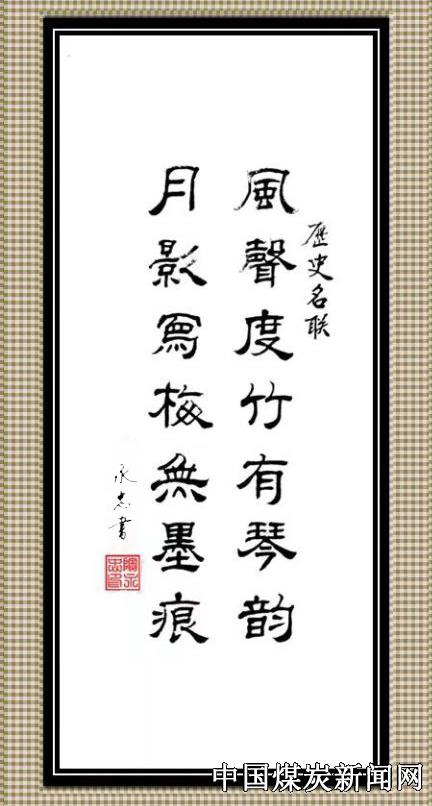 歷史名联
風聲度竹有琴韵
月影寫梅無墨痕
承志書
中国煤炭新闻网